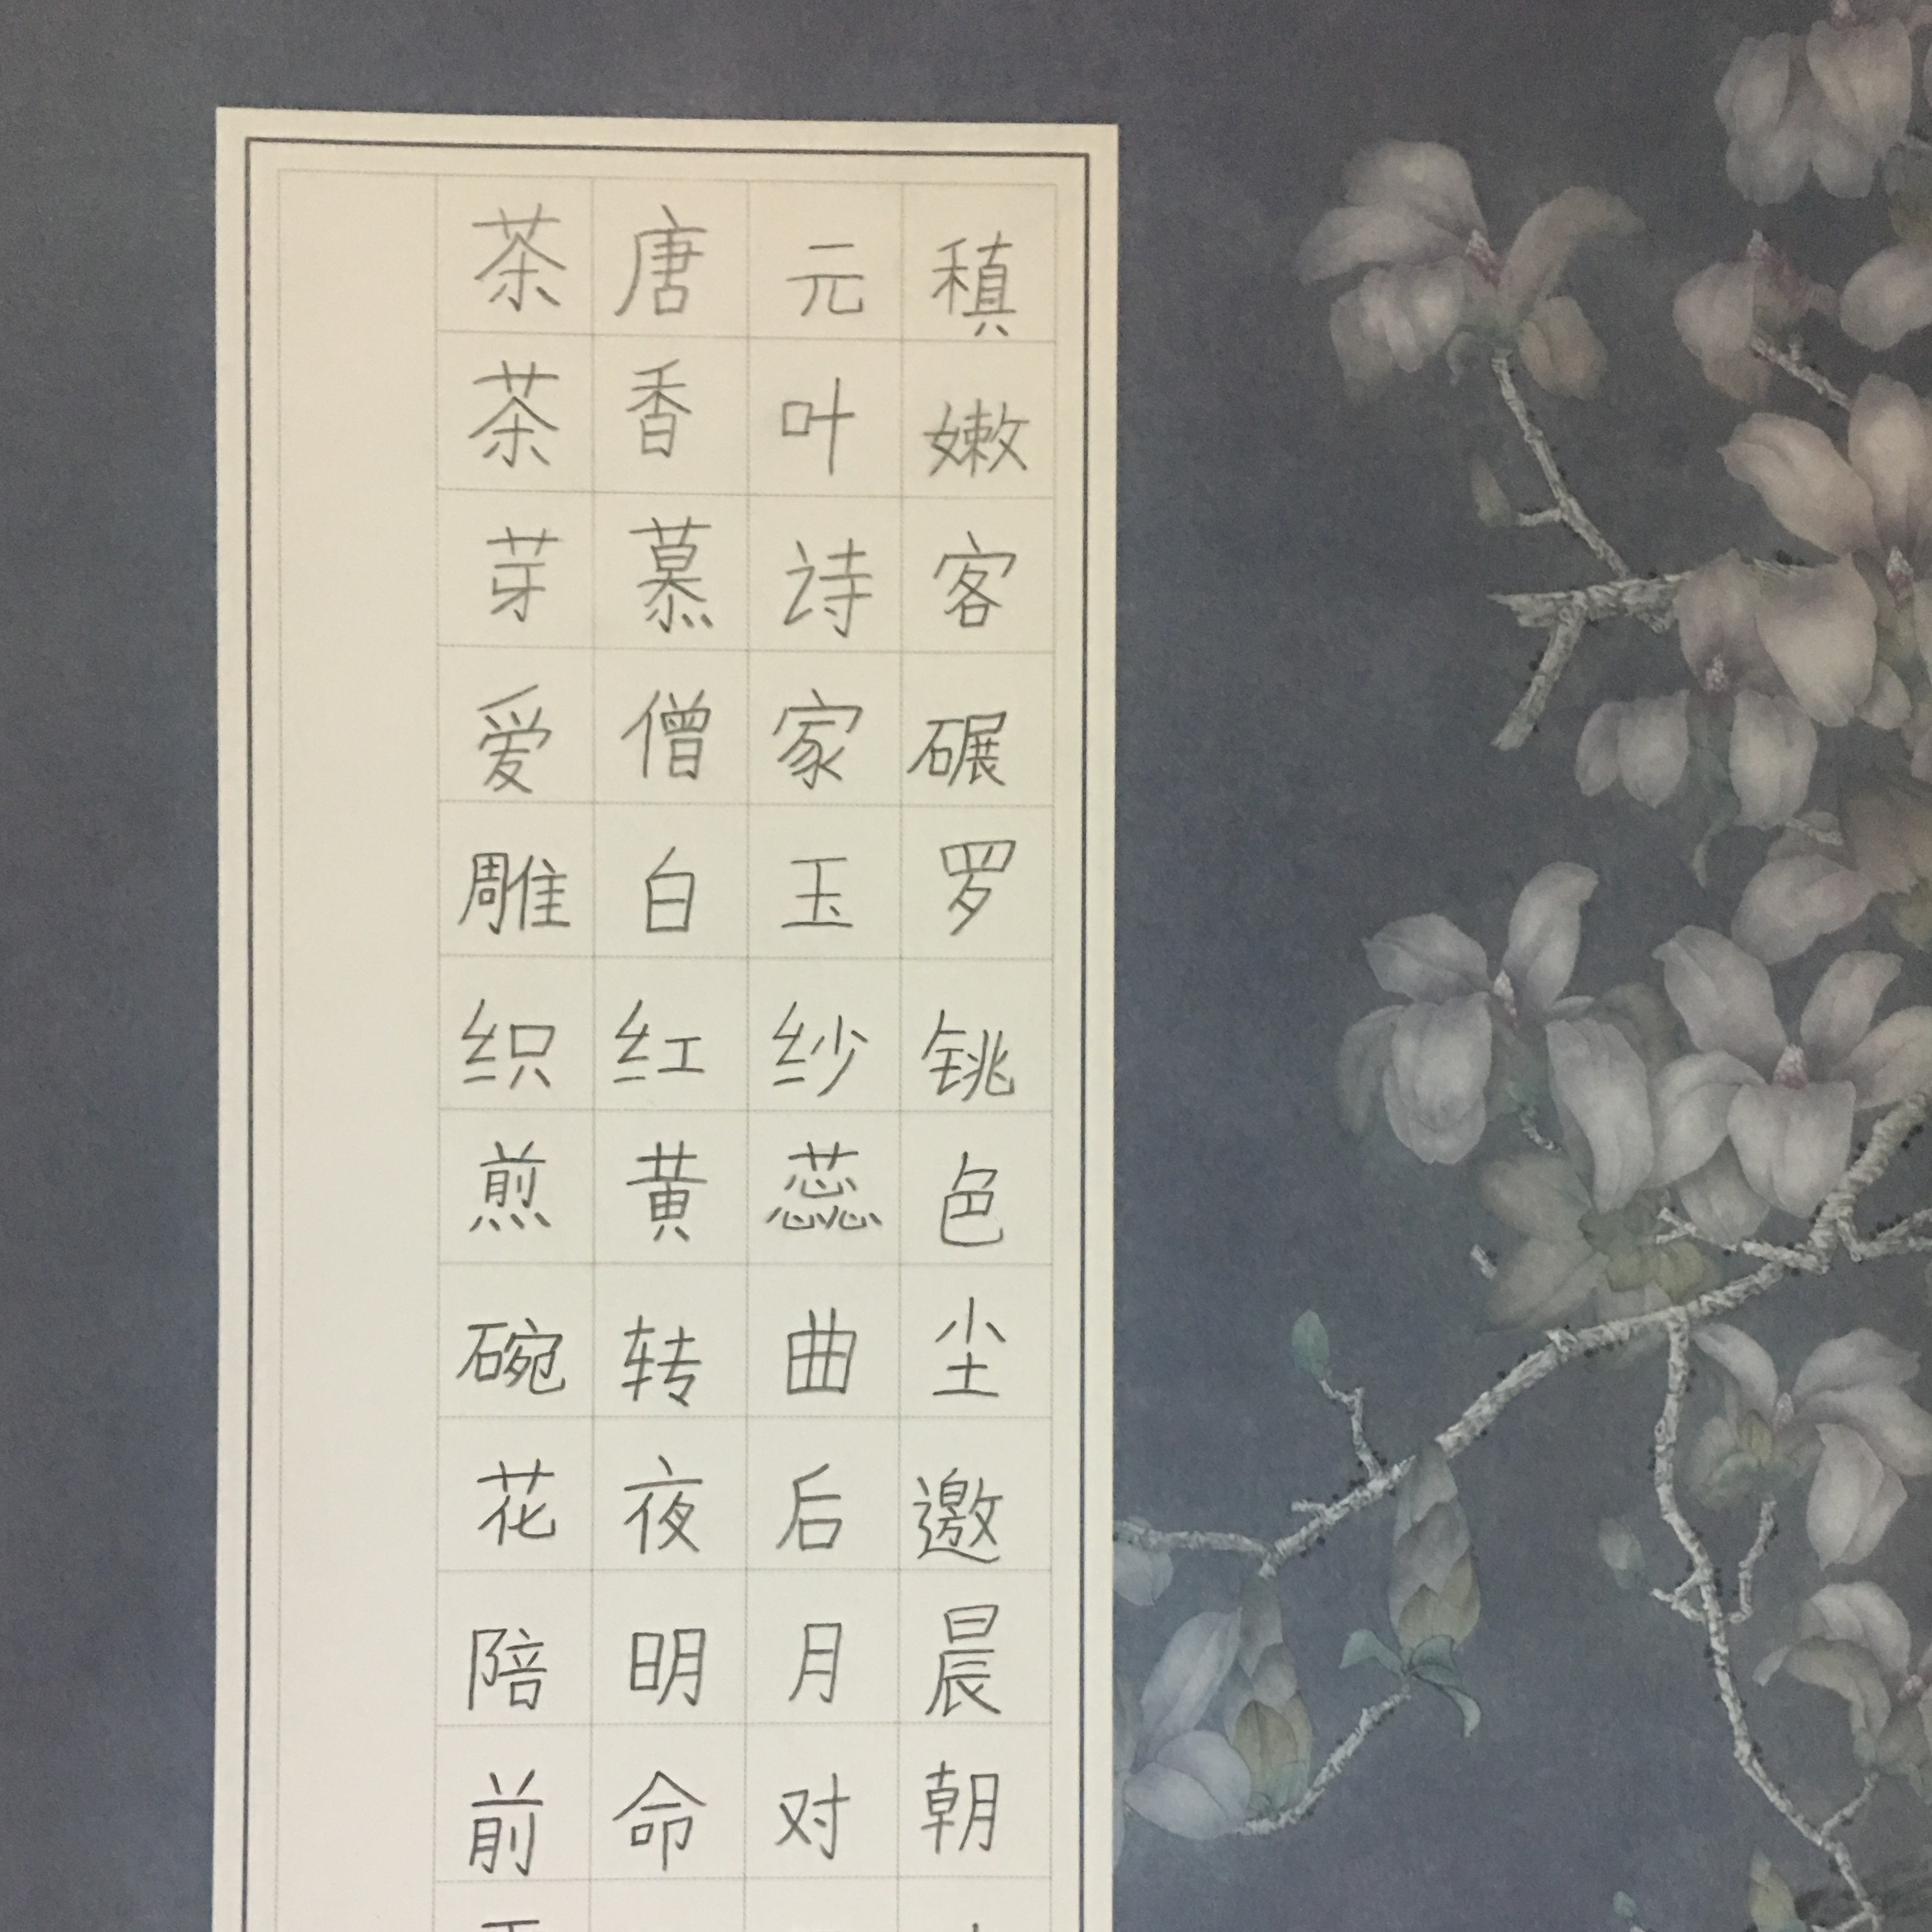 茶唐元稹
茶香叶嫩
芽慕诗客
爱僧家碾
雕白玉罗
织红纱铫
煎黄蕊色
碗转曲尘
花夜后邀
陪明月晨
前命对朝